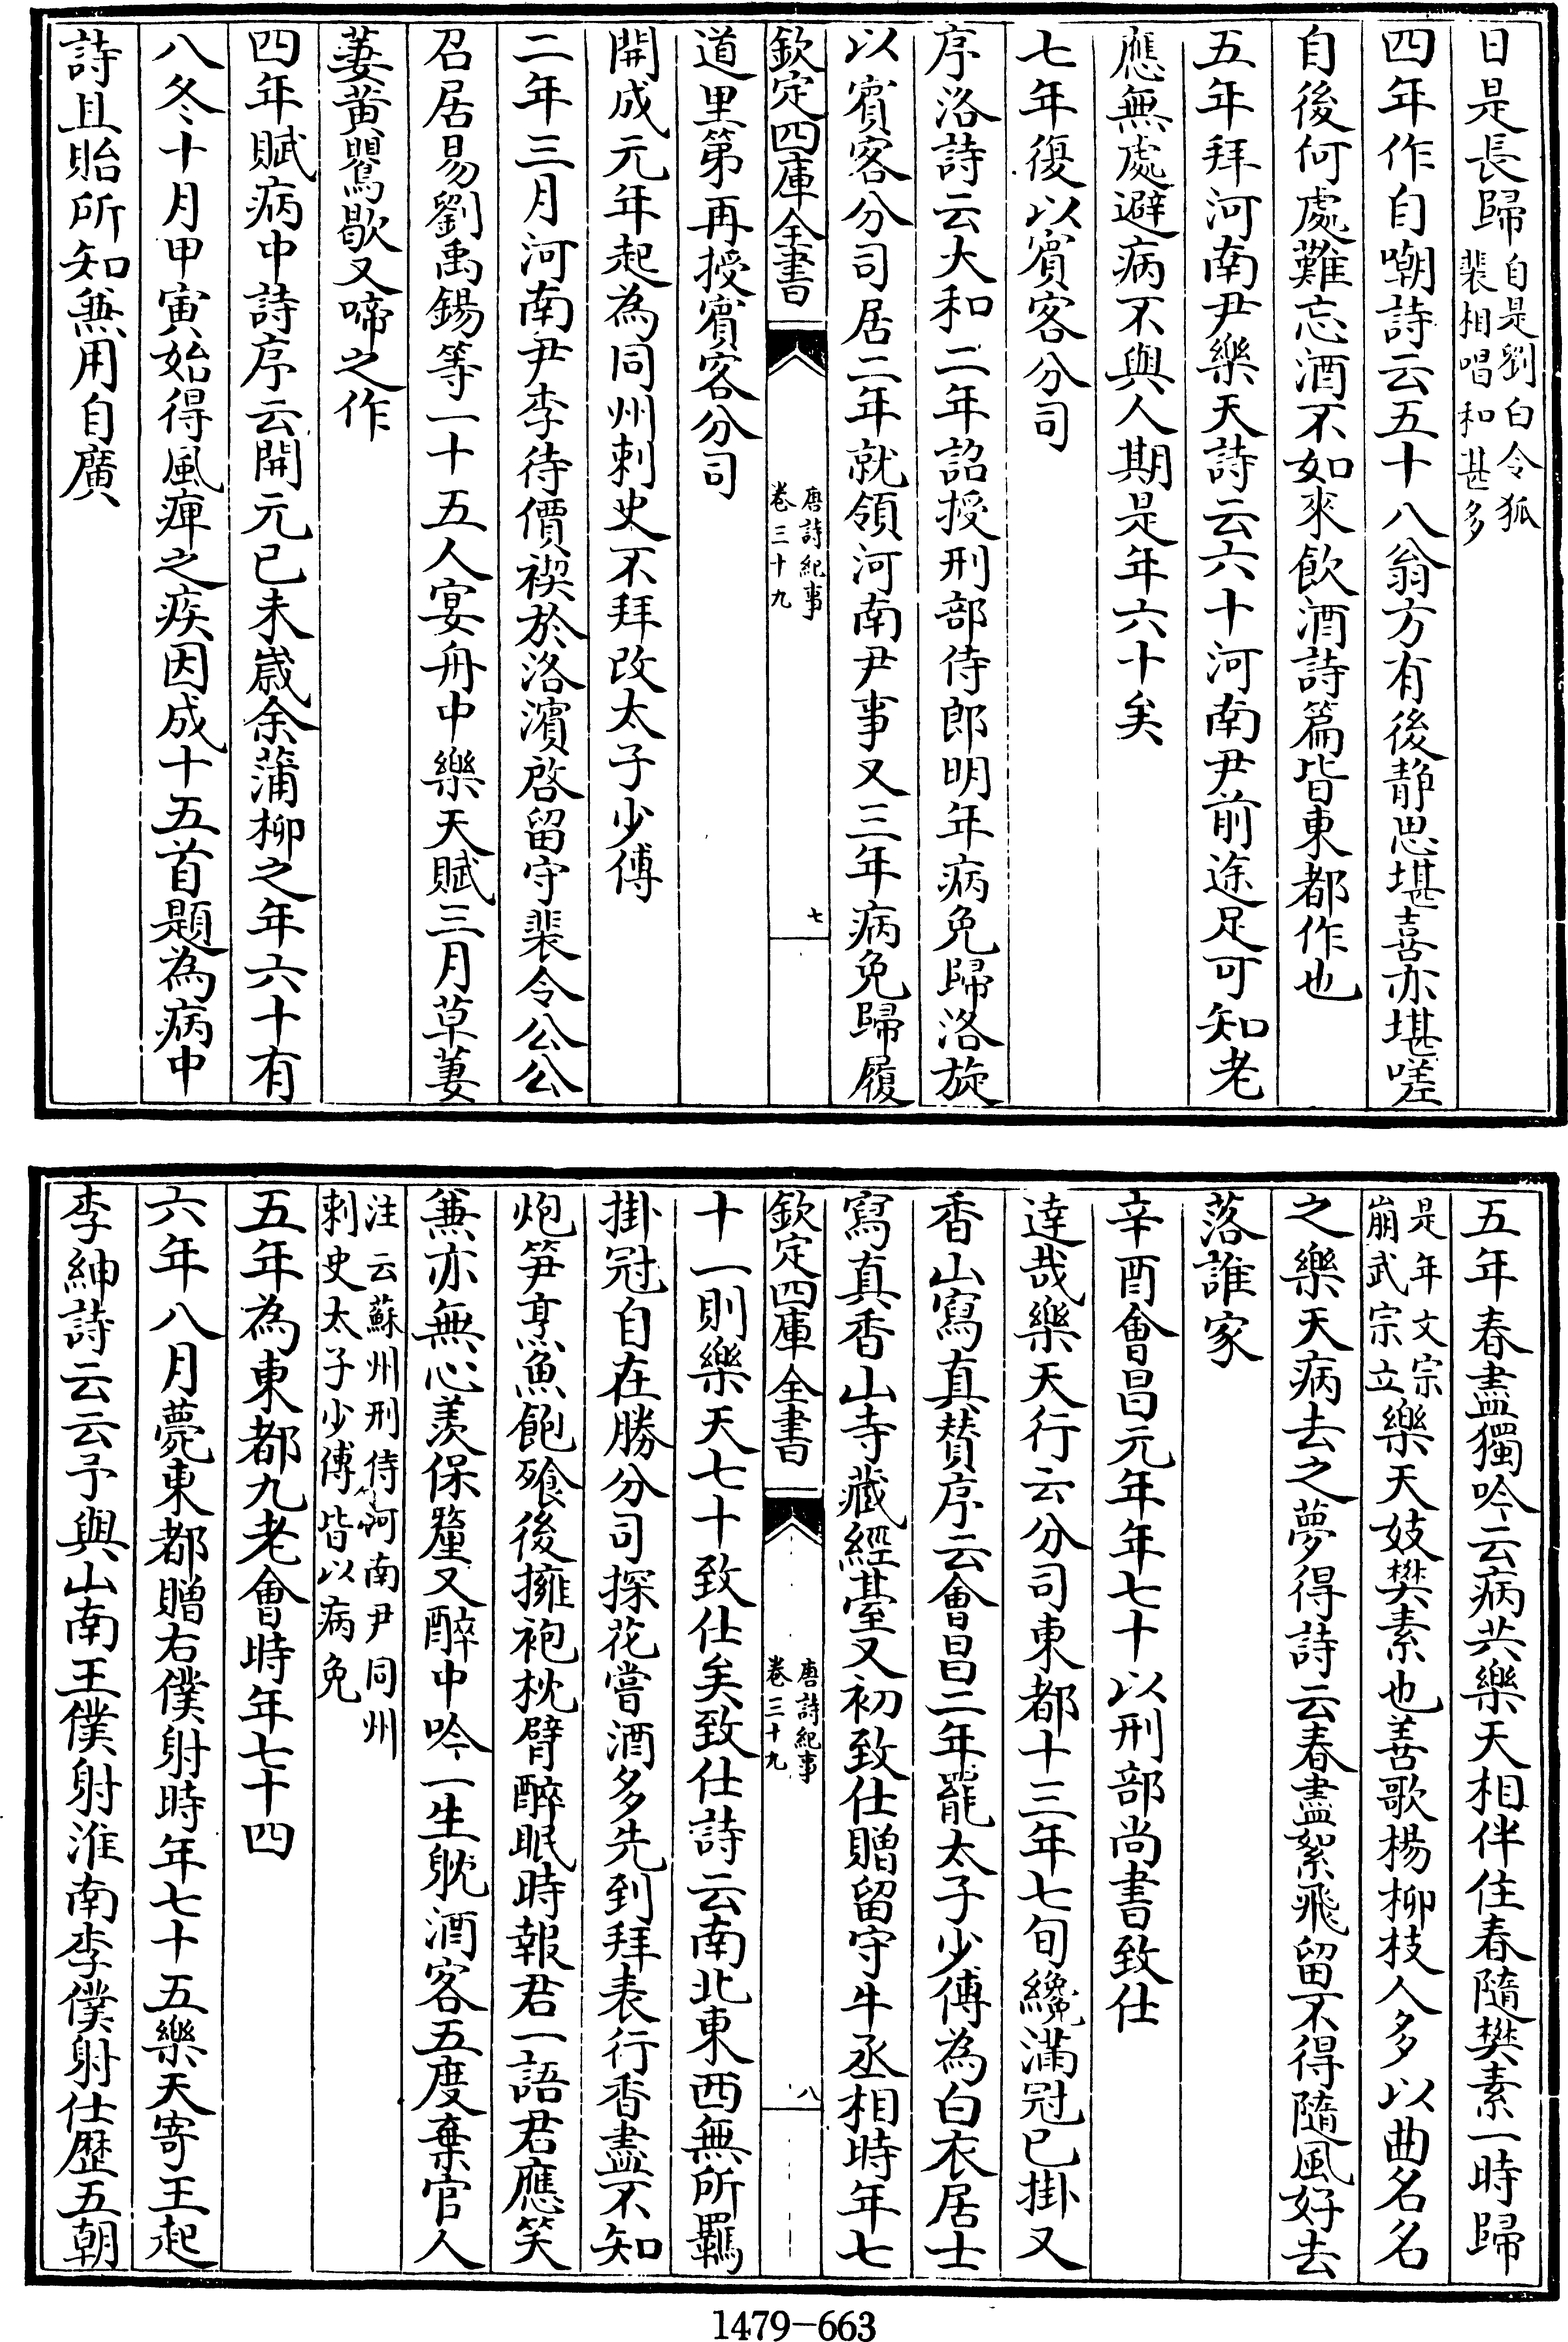 日是長歸自是劉白令狐裴相唱和甚多
四年作自嘲詩云五十八翁方有後静思堪喜亦堪嗟
自後何處難忘酒不如來飲酒詩篇皆東都作也
五年拜河南尹樂天詩云六十河南尹前途足可知老
應無處避病不與人期是年六十矣
七年復以賓客分司
序洛詩云大和二年詔授刑部侍郎明年病免歸洛旋
以賓客分司居二年就領河南尹事又三年病免歸履
欽定四庫全書
唐詩紀事
卷三十九
七
道里第再授賓客分司
開成元年起為同州刺史不拜改太子少傅
二年三月河南尹李待價禊於洛濱啓留守裴令公公
召居易劉禹錫等一十五人宴舟中樂天賦三月草萋
萋黄鸎歇又啼之作
四年賦病中詩序云開元己未歲余蒲柳之年六十有
八冬十月甲寅始得風痺之疾因成十五首題為病中
詩且貽所知兼用自廣
五年春盡獨吟云病共樂天相伴住春隨樊素一時歸
是年文宗崩武宗立樂天妓樊素也善歌楊柳枝人多以曲名名
之樂天病去之夢得詩云春盡絮飛留不得隨風好去
落誰家
辛酉會昌元年年七十以刑部尚書致仕
達哉樂天行云分司東都十三年七旬纔滿冠已掛又
香山寫真賛序云會昌二年罷太子少傅為白衣居士
寫真香山寺藏經䑓又初致仕贈留守牛丞相時年七
欽定四庫全書
唐詩紀事
卷三十九
八
十一則樂天七十致仕矣致仕詩云南北東西無所羈
掛冠自在勝分司探花嘗酒多先到拜表行香盡不知
炮笋烹魚飽飱後擁袍枕臂醉眠時報君一語君應笑
兼亦無心羨保釐又醉中吟一生躭酒客五度棄官人
注云蘇州刑侍河南尹同州刺史太子少傅皆以病免
五年為東都九老會時年七十四
六年八月薨東都贈右僕射時年七十五樂天寄王起
李紳詩云云予與山南王僕射淮南李僕射仕歴五朝
1479-663